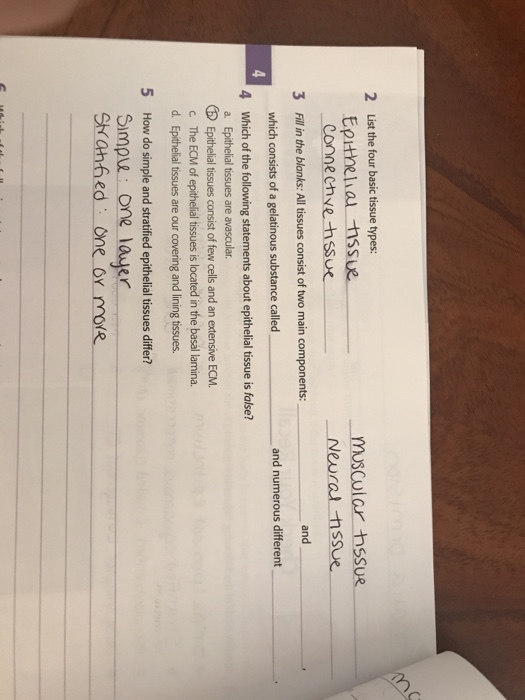 2 List the four basic tissue types:
Epithelial tissue muscular tissue
Connective tissue Neural tissue
3 Fill in the blanks: All tissues consist of two main components: and ,
which consists of a gelatinous substance called and numerous different .
4
4 Which of the following statements about epithelial tissue is false?
a. Epithelial tissues are avascular.
b. Epithelial tissues consist of few cells and an extensive ECM.
c. The ECM of epithelial tissues is located in the basal lamina.
d. Epithelial tissues are our covering and lining tissues.
5 How do simple and stratified epithelial tissues differ?
Simple: one layer
Stratified: one or more